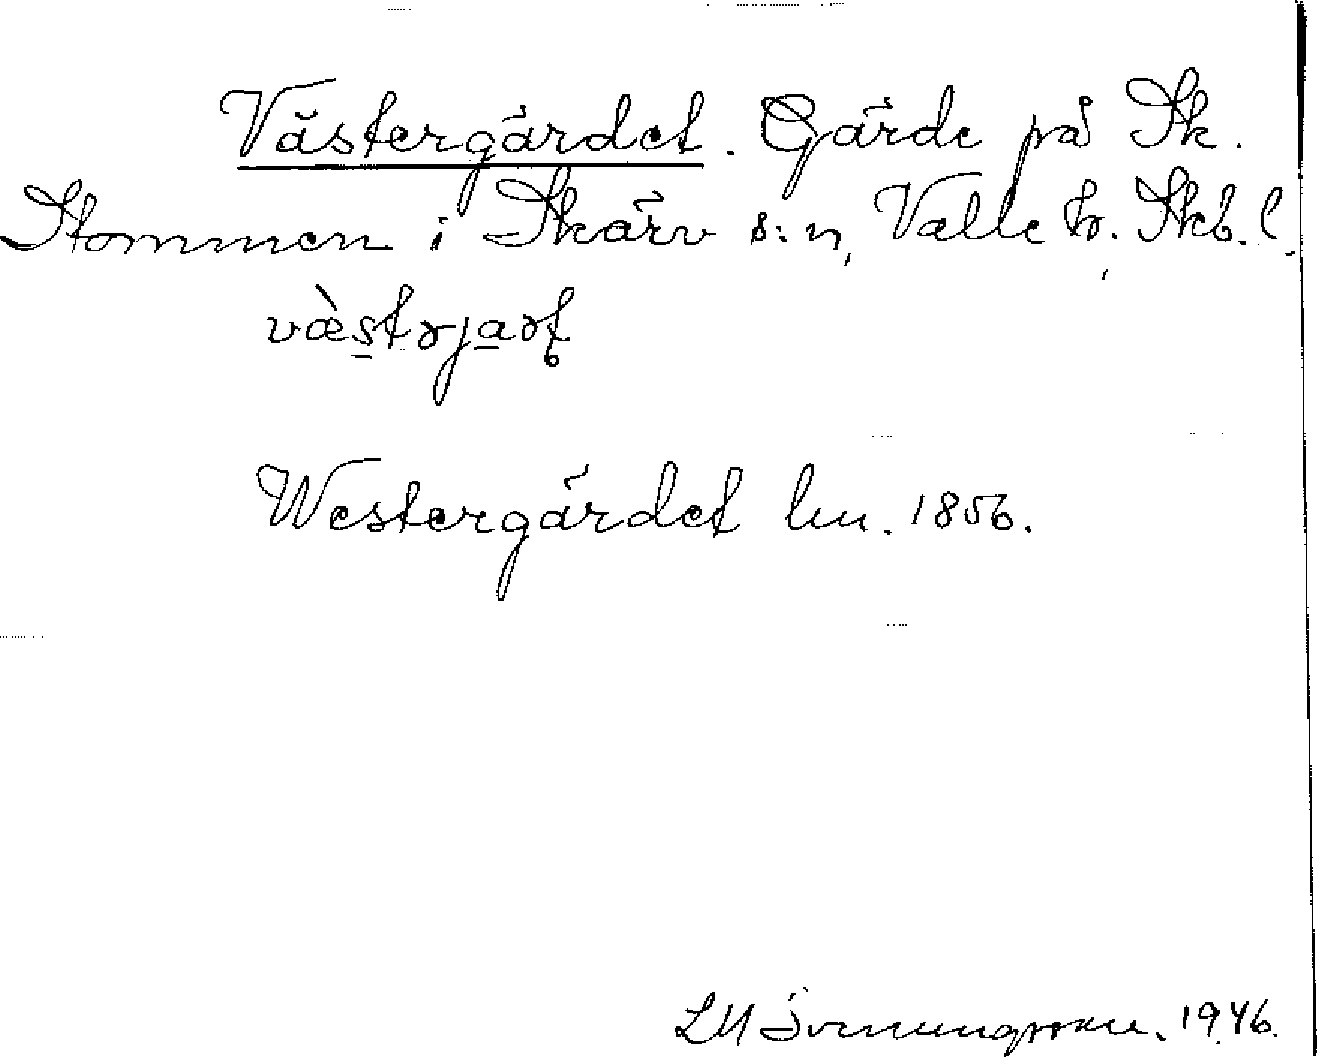 Västergärdet. Gärde på Sk.
Stommen i Skärv s:n, Valle hr. Skb. l.
Westergärdet lm. 1856.
LM Svenungsson. 1946.